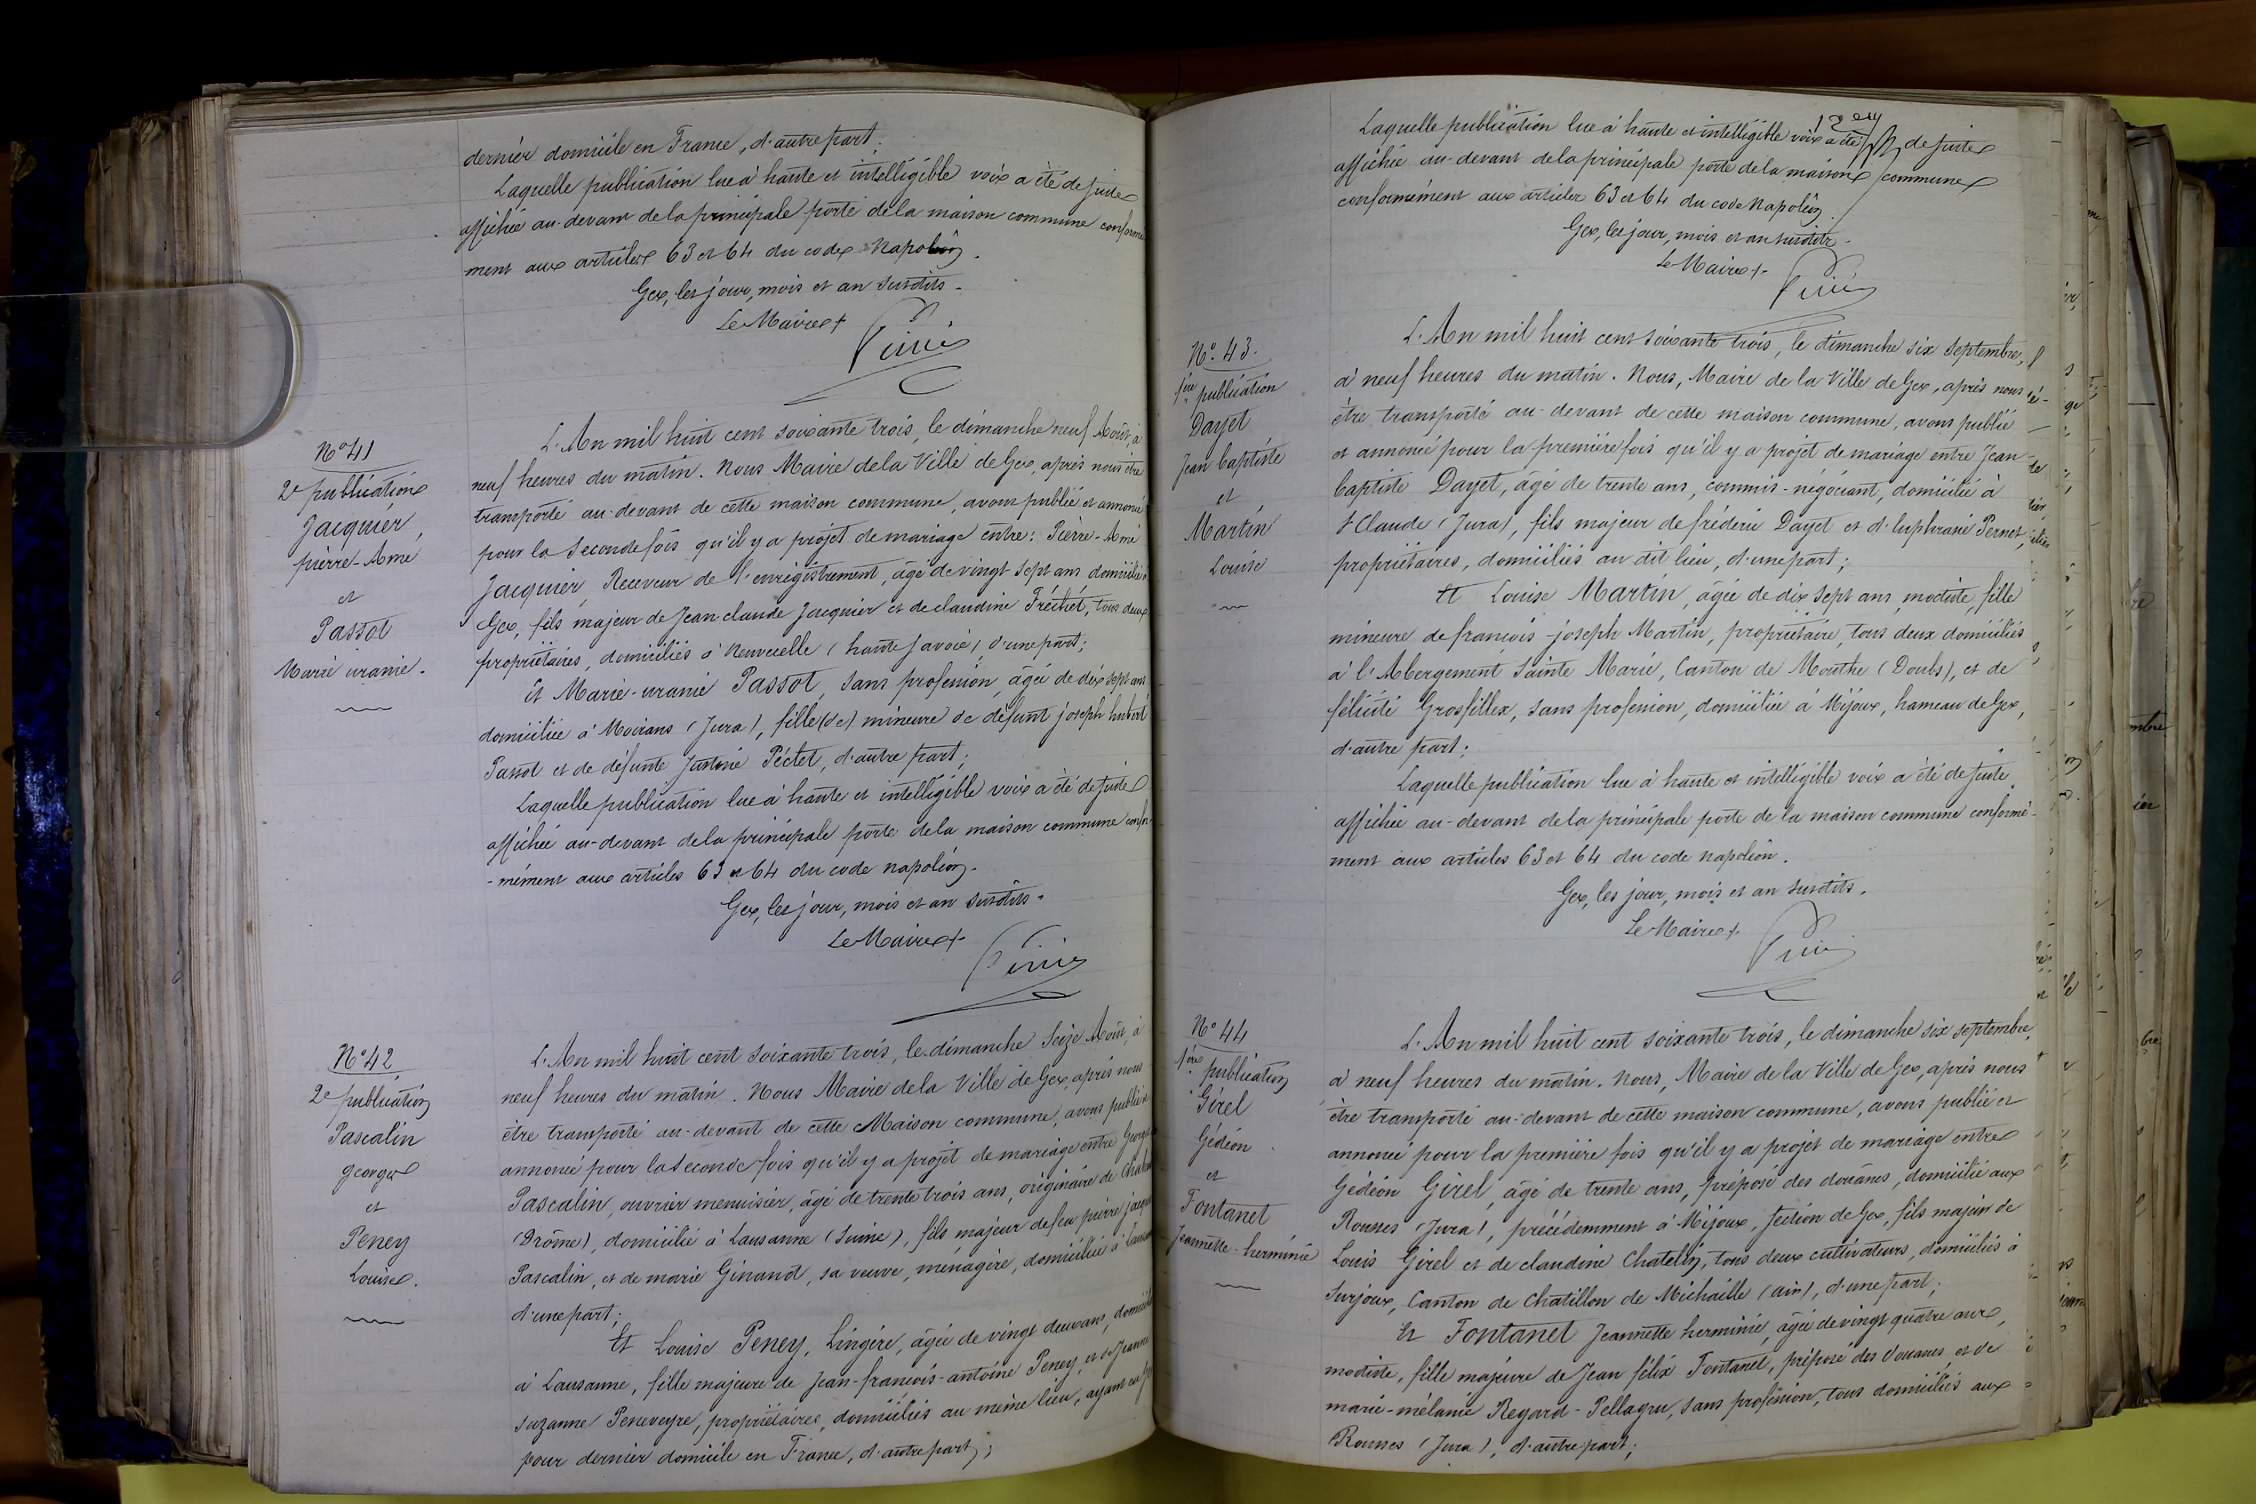 dernier domicile en France, d'autre part;
Laquelle publication lue à haute et intelligible voix a été de suite
affichée au-devant de la principale porte de la maison commune conformé
ment aux articles 63 et 64 du code Napoléon.
Gex, les jour, mois et an susdits.
Le Maire
N° 41
2e publication
Jacquier,
pierre-Amé
et
Passot
Marie uranie.
L'An mil huit cent soixante trois, le dimanche neuf Août, à
neuf heures du matin. Nous Maire de la Ville de Gex, après nous être
transporté au-devant de cette maison commune, avons publié et annoncé
pour la seconde fois qu'il y a projet de mariage entre: Pierre-Amé
Jacquier, Receveur de l'enregistrement, âgé de vingt sept ans domicilié à
Gex, fils majeur de Jean claude Jacquier et de claudine Fréchet, tous deux
propriétaires, domiciliés à Neuvecelle (haute savoie) d'une part;
Et Marie-uranie Passot, sans profession, âgée de dix sept ans
domiciliée à Moirans (Jura), fille (de) mineure de défunt joseph hubert
Passot et de défunte Justine Péctet, d'autre part;
Laquelle publication lue à haute et intelligible voix a été de suite
affichée au-devant de la principale porte de la maison commune confor-
-mément aux articles 63 et 64 du code napoléon.
Gex, les jour, mois et an susdits.
Le Maire
N° 42
2e publication
Pascalin
george
et
Peney
Louise.
L'An mil huit cent soixante trois, le dimanche Seize Août, à
neuf heures du matin. Nous Maire de la Ville de Gex, après nous
être transporté au-devant de cette Maison commune, avons publié et
annoncé pour la seconde fois qu'il y a projet de mariage entre George
Pascalin, ouvrier menuisier, âgé de trente trois ans, originaire de
(Drôme), domicilié à Lausanne (Suisse), fils majeur de feu pierre jacques
Pascalin, et de marie Ginanot, sa veuve, ménagère, domiciliée à
d'une part;
Et Louise Peney, Lingère, âgée de vingt deux ans, domiciliée
à Lausanne, fille majeure de Jean-françois-antoine Peney, et de Jeanne
suzanne Peneveyre, propriétaires, domiciliés au même lieu, ayant eu
pour dernier domicile en France, d'autre part;
Laquelle publication lue à haute et intelligible voix a été de suite
affichée au-devant de la principale porte de la maison commune
conformément aux articles 63 et 64 du code Napoléon.
Gex, les jour, mois et an susdits.
Le Maire
N° 43.
1ère publication
Dayet
Jean baptiste
et
Martin
Louise
L'An mil huit cent soixante trois, le dimanche six septembre,
à neuf heures du matin. Nous, Maire de la Ville de Gex, après nous
être transporté au-devant de cette maison commune, avons publié
et annoncé pour la première fois qu'il y a projet de mariage entre Jean-
baptiste Dayet, âgé de trente ans, commis-négociant, domicilié à
St Claude (Jura), fils majeur de fréderic Dayet et d'Euphrasie Pernet,
propriétaires, domiciliés au dit lieu, d'une part;
Et Louise Martin, âgée de dix sept ans, modiste, fille
mineure de françois-joseph Martin, propriétaire, tous deux domiciliés
à l'Abergement Sainte Marie, Canton de Mouthe (Doubs), et de
félicité Grosfillex, sans profession, domiciliée à Mijoux, hameau de Gex,
d'autre part;
Laquelle publication lue à haute et intelligible voix a été de suite
affichée au-devant de la principale porte de la maison commune conformé-
ment aux articles 63 et 64 du code napoléon.
Gex, les jour, mois et an susdits.
Le Maire
N° 44
1ère publication
Girel
Gédéon
et
Fontanet
Jeannette-herminie
L'An mil huit cent soixante trois, le dimanche six septembre,
à neuf heures du matin. Nous, Maire de la Ville de Gex, après nous
être transporté au-devant de cette maison commune, avons publié et
annoncé pour la première fois qu'il y a projet de mariage entre
Gédéon Girel, âgé de trente ans, préposé des douanes, domicilié aux
Rousses (Jura), précédemment à Mijoux, section de Gex, fils majeur de
Louis Girel et de claudine Chatelin, tous deux cultivateurs, domiciliés à
Surjoux, Canton de Chatillon de Michaille (ain), d'une part;
Et Fontanet Jeannette herminie, âgée de vingt quatre ans,
modiste, fille majeure de Jean félix Fontanet, préposé des douanes, et de
marie-mélanie Regard-Pellagru, sans profession, tous domiciliés aux
Rousses (Jura), d'autre part;